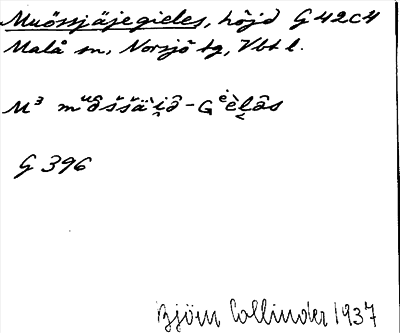 Muössjäjegieles, höjd G 42C4
Malå sn, Norsjö tg, Vbt l.
M³
G 396
Björn Collinder 1937